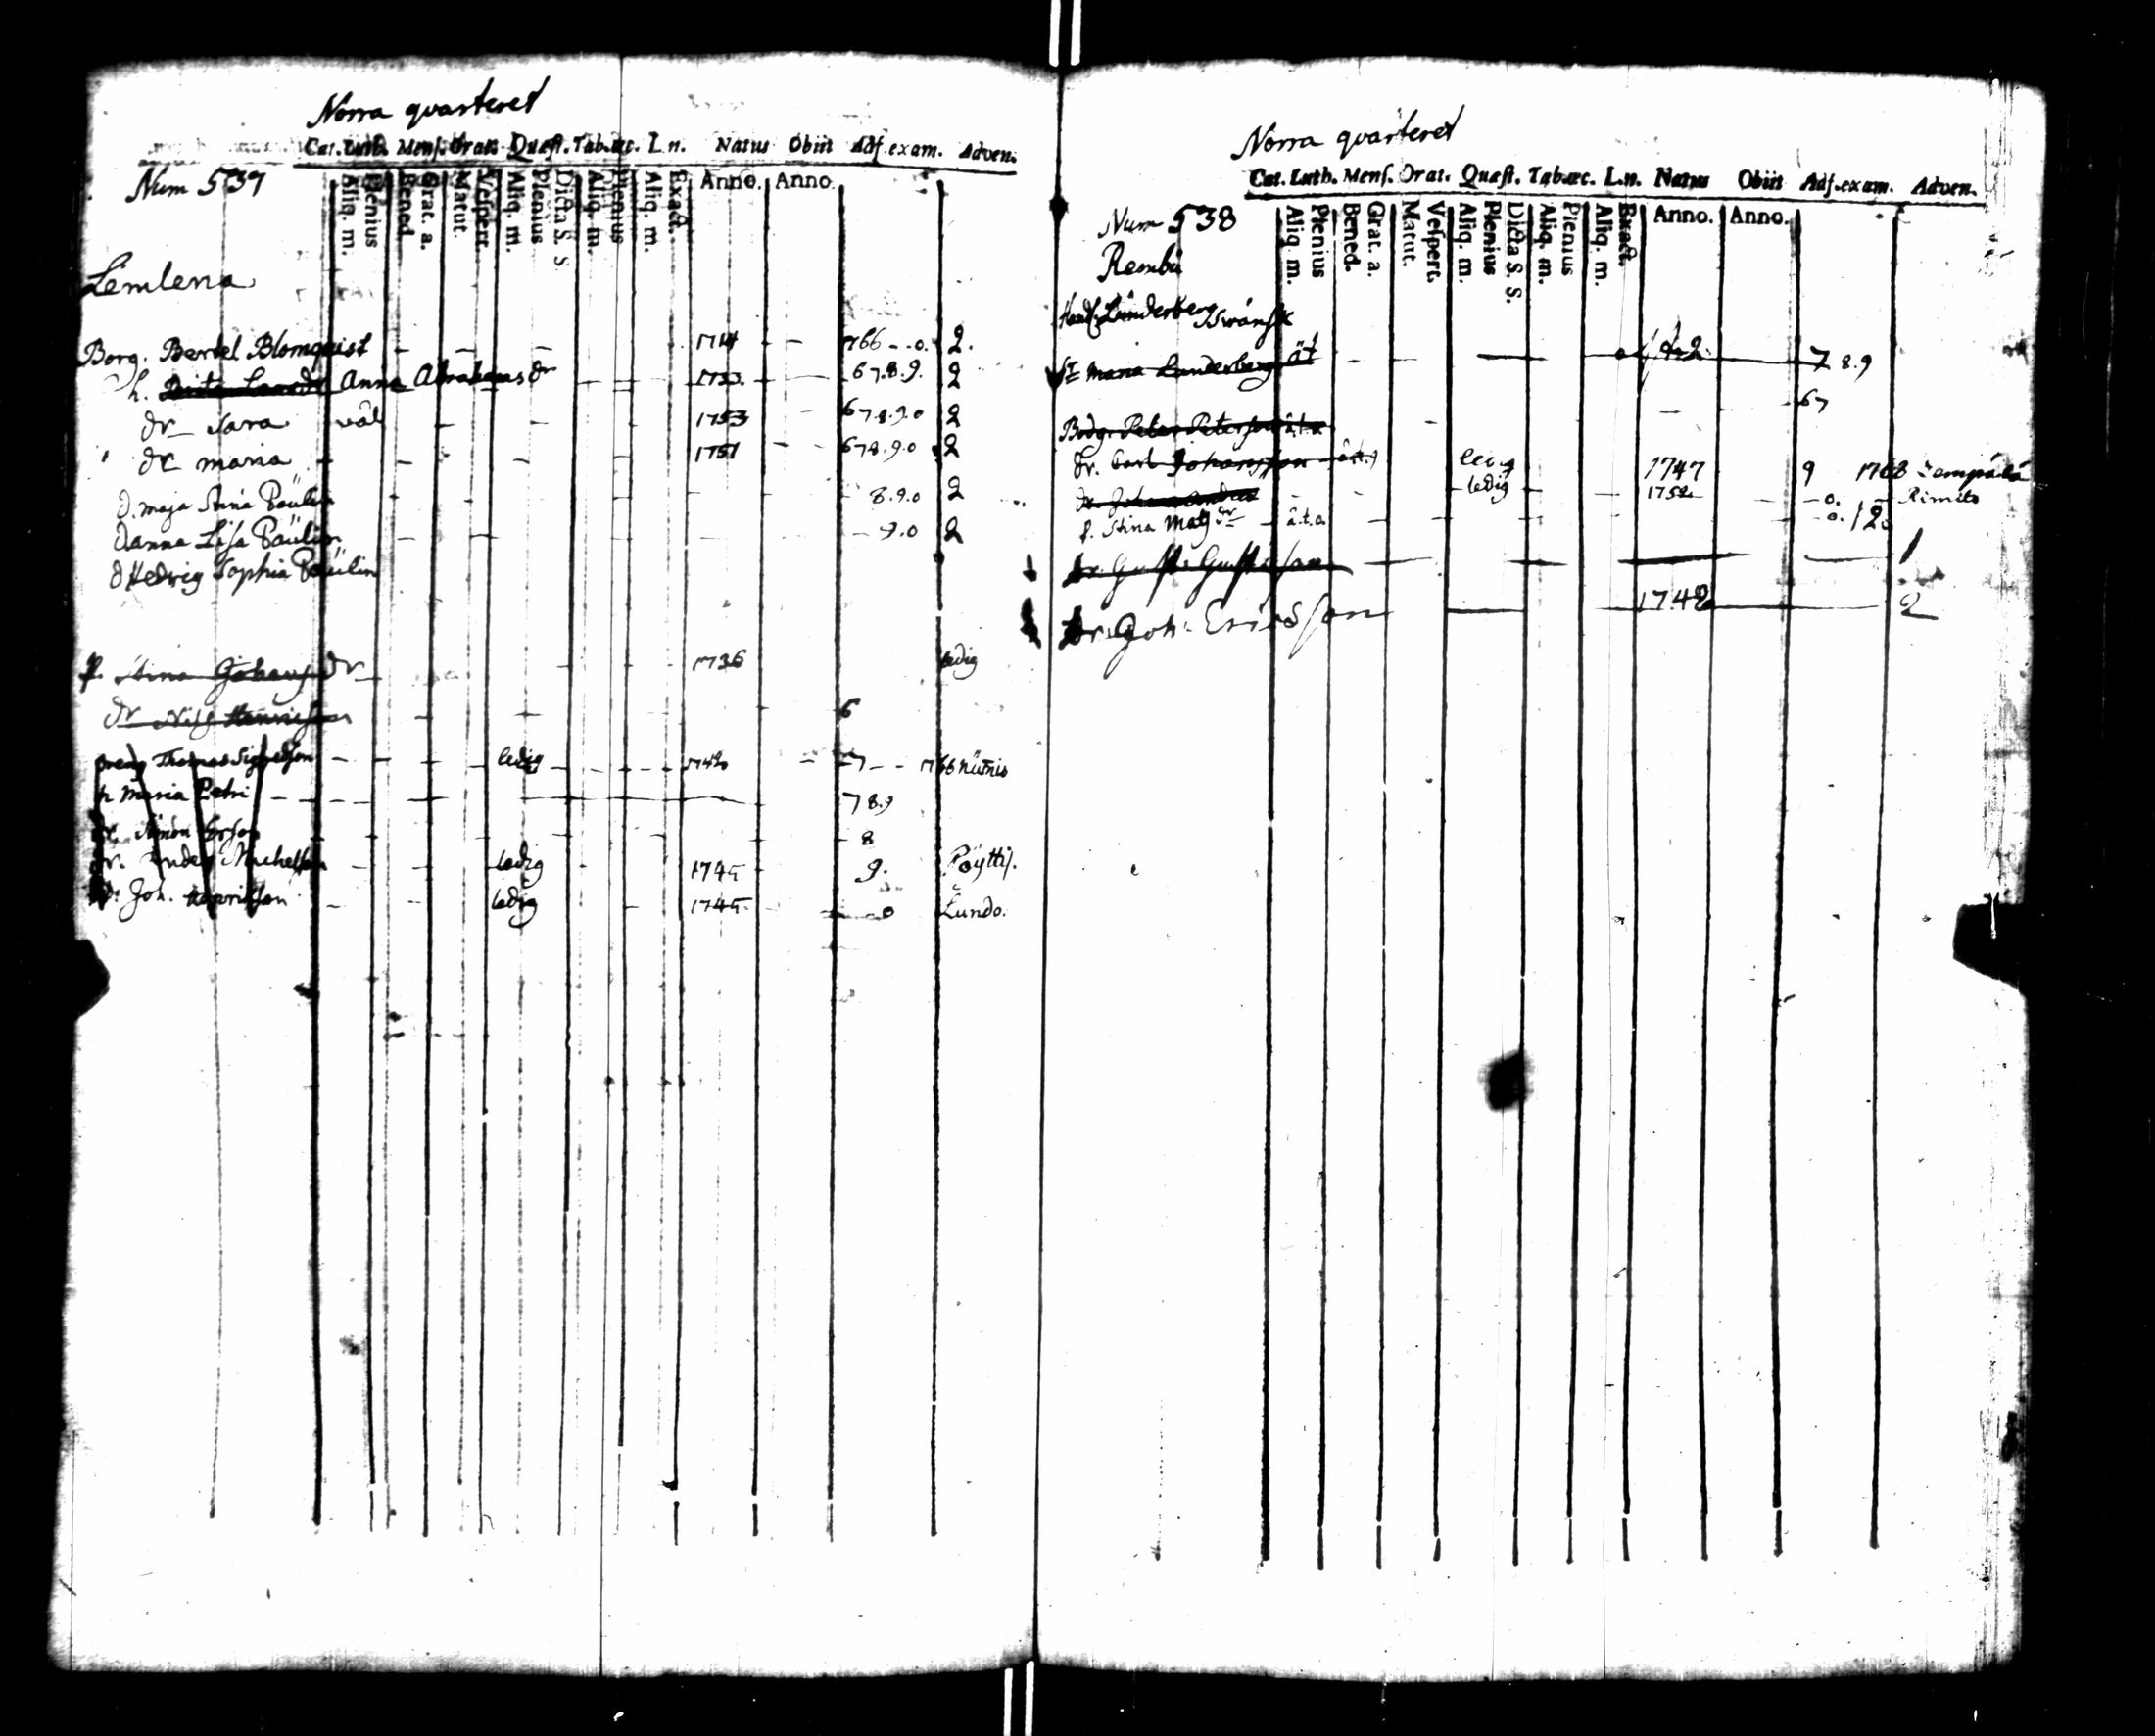 Norra quarteret
Cat. Luth. Mens. Orat. Quæst. Tab. œc. L. n. Natus Obiit Adf. exam. Adven.
Num 537 Aliq. m. Plenius Bened. Grat. a. Matut. Vespert. Aliq. m. Plenius Dicta S. S. Aliq. m. Plenius Aliq. m. Exact. Anno. Anno
Lemlena
Borg. Bertel Blomquist 1714 1766 - - 0. 2.
h. Anna Abrahams dr 1733 6 7.8.9. 2
dr Sara väl 1753 6 7.8.9.0 2
dr maria 1751 6 7 8.9.0 2
d. maja Stina Paülin 8.9.0 2
d anna Lisa Paülin 9.0 2
d Hedwig Sophia Paülin
p. Stina Johans dr 1736 ledig
dr Nils Henricsson 6
dreng Thomas Sigfredson ledig 1742 7 - - 1766 Nūmis
p Maria Petri 7 8.9
dr. Simon Ersson 8
dr. Anders Michelsson ledig 1745 9. Pöyttis.
dr Joh. Henricsson ledig 1745 0 Lundo.
Norra quarteret
Cat. Luth. Mens. Orat. Quæst. Tab. œc. L. n. Natus Obiit Adf. exam. Adven.
Num 538 Aliq. m. Plenius Bened. Grat. a. Matut. Vespert. Aliq. m. Plenius Dicta S. S. Aliq. m. Plenius Aliq. m. Exact. Anno. Anno.
Rembū
Lünderberg Swänsk
Maria Lunderberg ät 7 8.9
67
Borg. Peter Peterson ä.t.a
dr. Carl Johansson ledig 1747 9 1768 Lempälä
dr Johan Anderss ledig 1752 0. Rimito
p. Stina Mats dr ä.t.a. 0. 2.
dr. Gust. Gustafson 1
dr. Joh. Ericsson 1742 2